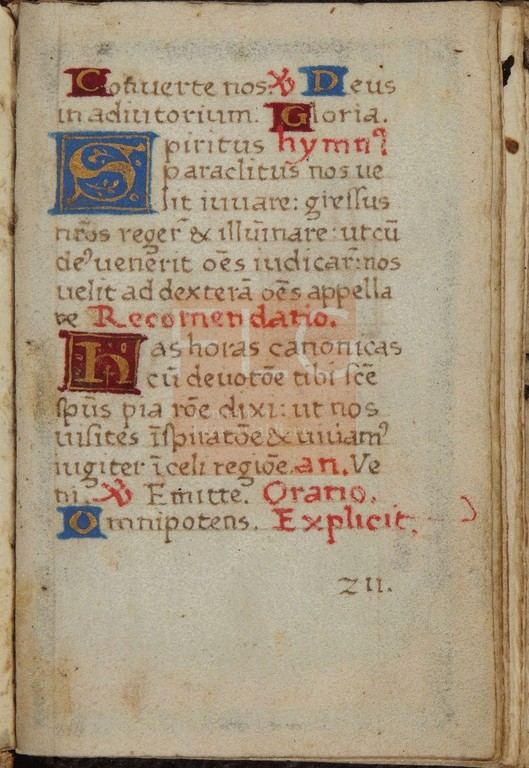 Conuerte nos ℣ Deus
in adiutorium. Gloria.
Spiritus hymnꝰ
paraclitus nos ue
lit iuuare: gressus
nr̃os reger̃ & illũinare: ut cũ
deꝰ uenerit oẽs iudicar̃: nos
uelit ad dexterã oẽs appella
re Recomendatio.
Has horas canonicas
cũ deuotõe tibi sc̃e
sp̃us pia rõe dixi: ut nos
uisites ĩspiratõe & uiuamꝰ
iugiter ĩ celi regiõe. an. Ve
ni. ℣ Emitte. Oratio.
Omnipotens. Explicit.
zii.